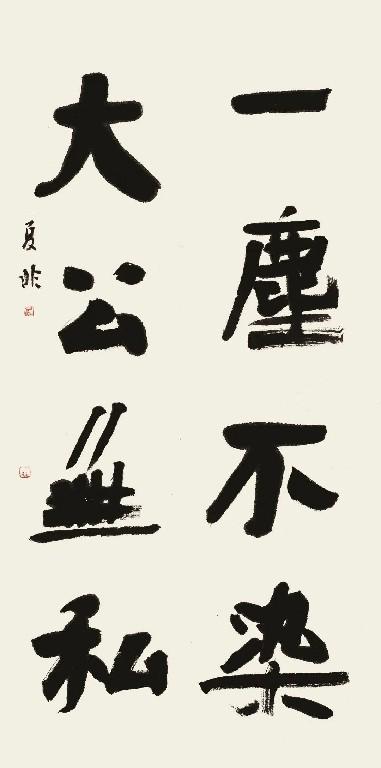 一塵不染
大公無私
夏非